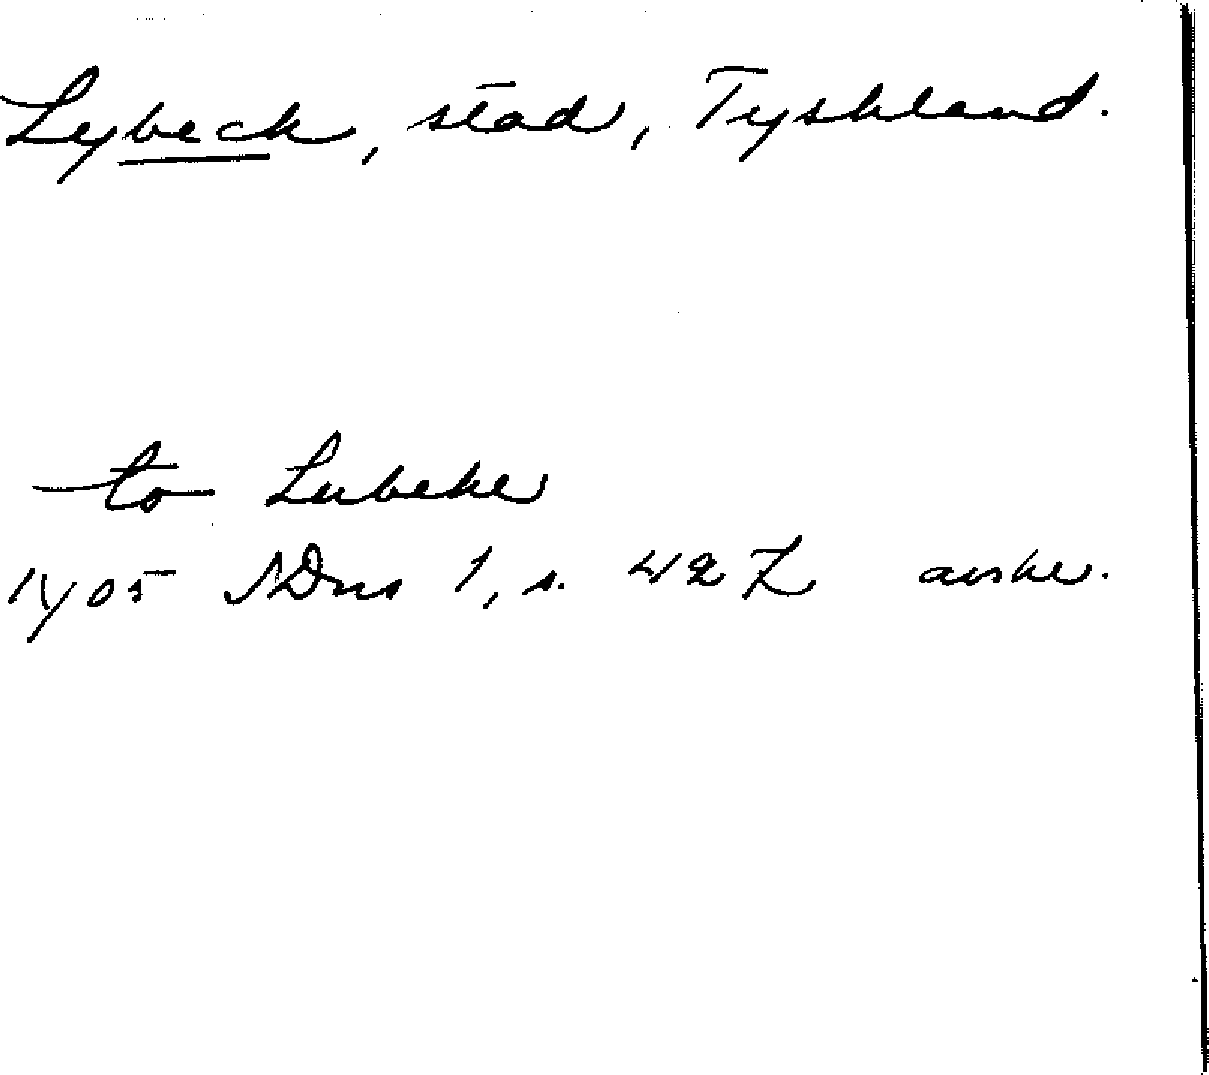 Lybeck, stad, Tyskland.
to Lubeke
1405 SDns 1, s. 427 avskr.